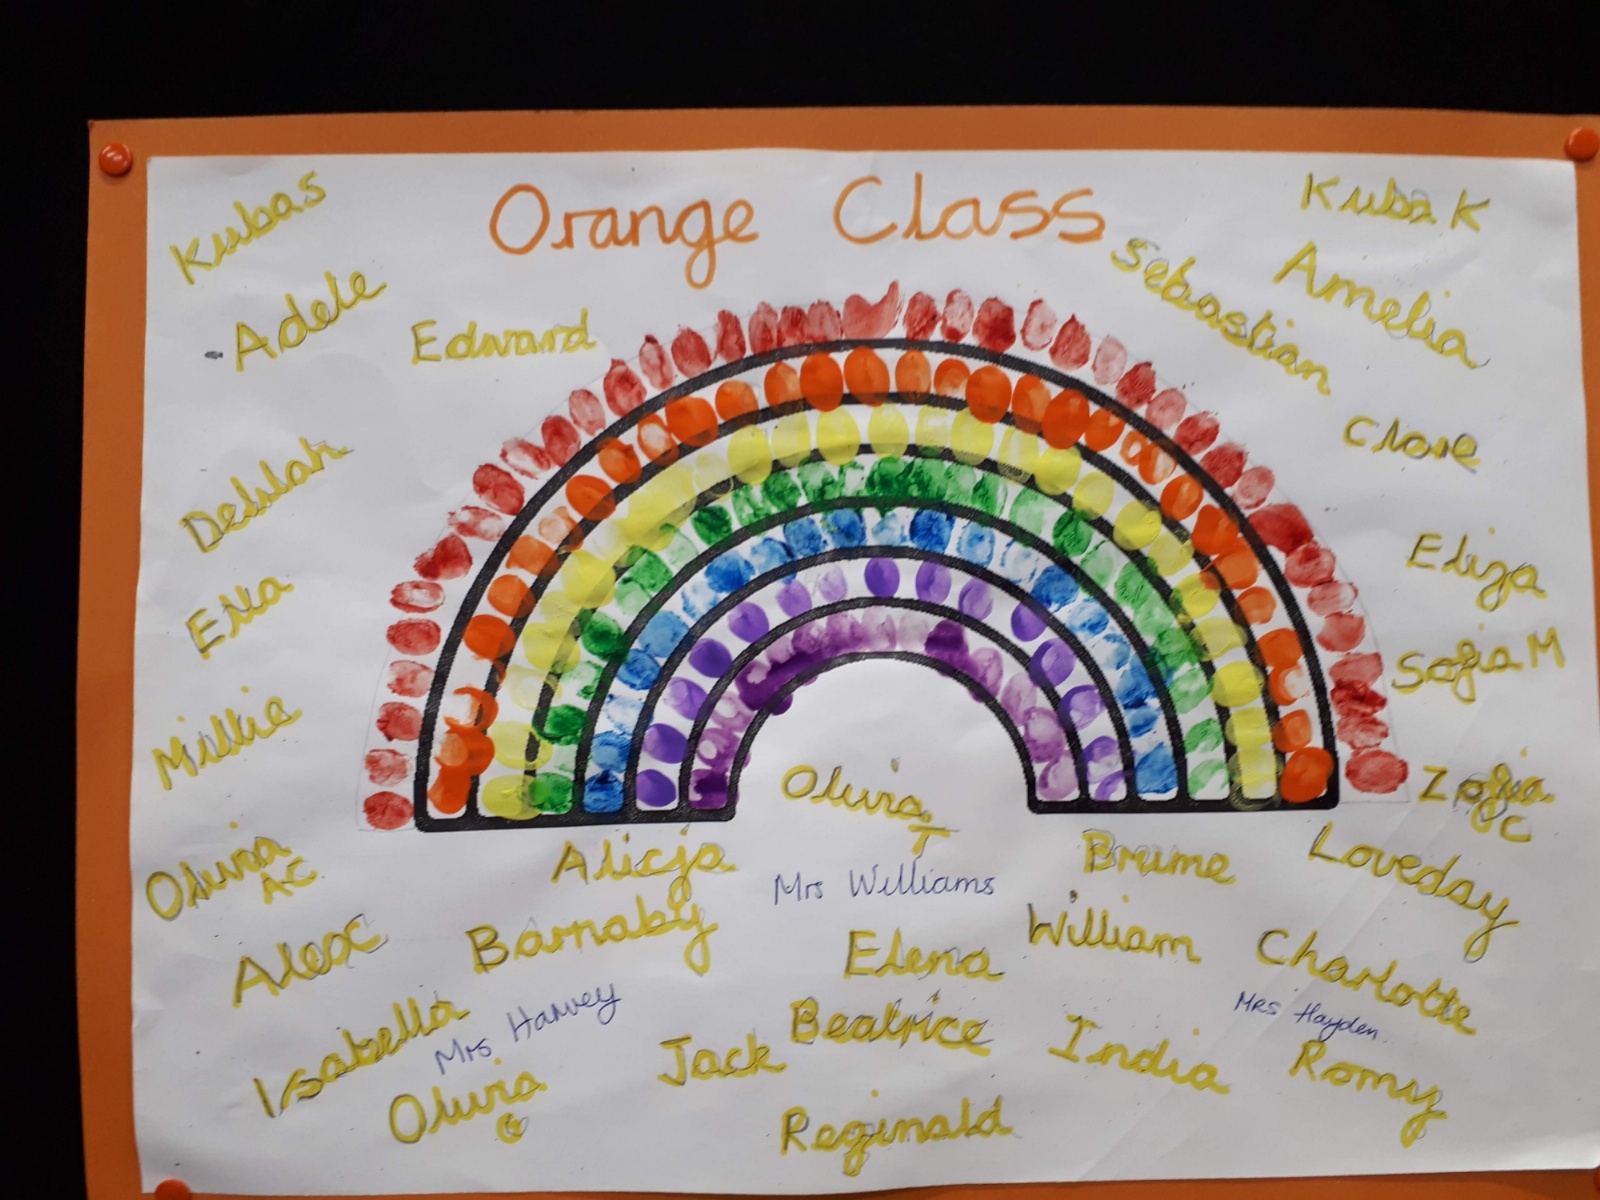 Orange Class
Kubas
Kuba K
Adele
Edward
Sebastian
Amelia
Delilah
Clare
Ella
Eliza
Millie
Sofia M
Olivia T
Zofia
Olivia AC
Alicja
Mrs Williams
Brume
Loveday
Alex
Barnaby
Elena
William
Charlotte
Isabella
Mrs Harvey
Beatrice
Mrs Hayden
Olivia G
Jack
India
Romy
Reginald